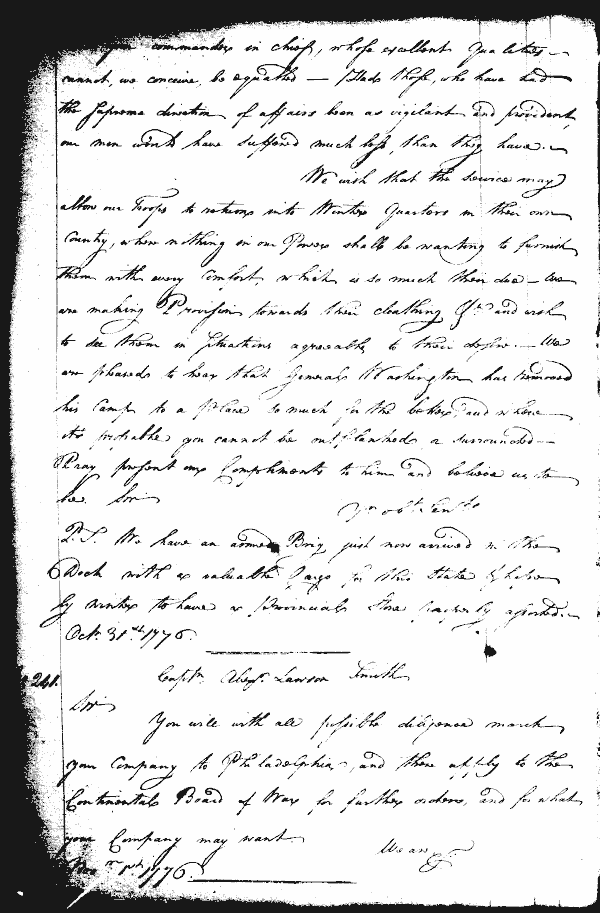 your commander in chief, whose excellent Qualities
cannot, we conceive, be equalled — Had those, who have had
the Supreme direction of affairs been as vigilant and provident,
our men would have suffered much less, than they have. —
We wish that the service may
allow our Troops to return into Winter Quarters in their own
Country, where nothing in our Power shall be wanting to furnish
them with every Comfort which is so much their due — We
are making Provision towards their cloathing &c. and wish
to see them in situations agreeable to their desire. — We
are pleased to hear that General Washington has removed
his Camp to a place so much for the better, and where
it's probable you cannot be outflanked or surrounded —
Pray present our Compliments to him and believe us to
be Sir
Yr. obt. Servts.
P.S. We have an armed Brig just now arrived in the
Dock with a valuable Cargo for this State & hope
by winter to have a Provincial Store properly assorted. —
Octr. 31st 1776.
241. Captn. Alexr. Lawson Smith
Sir
You will with all possible diligence march
your Company to Philadelphia, and there apply to the
Continental Board of War for further orders, and for what
your Company may want.
We are &c.
Novr. 1st 1776.